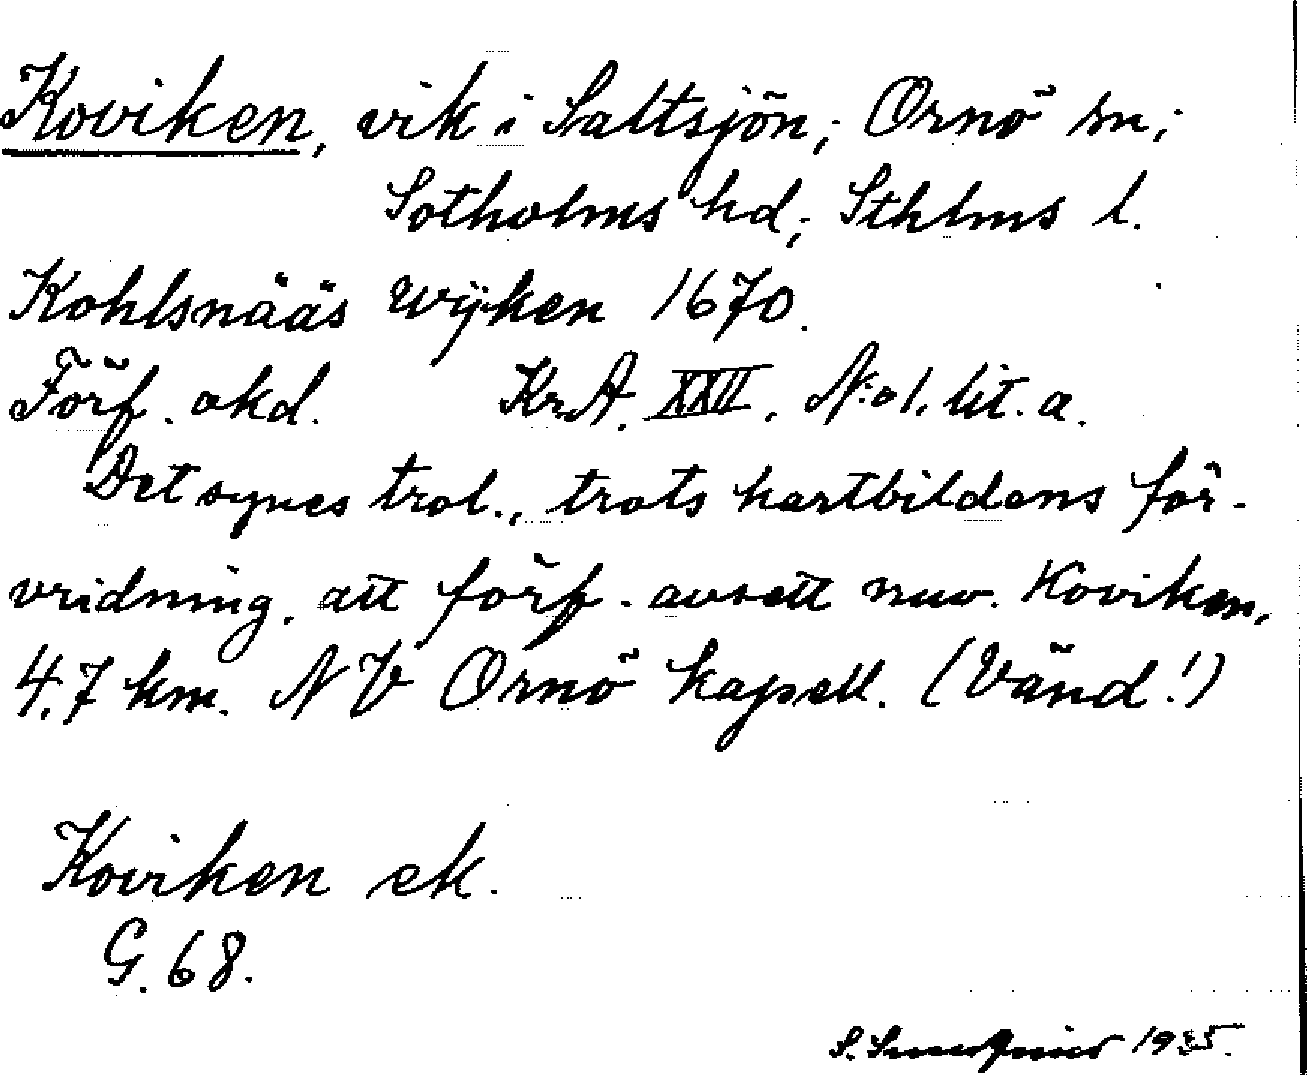 Koviken, vik i Saltsjön; Ornö sn;
Sotholms hd; Sthlms l.
Kohlsnääs Wÿken 1670.
Förf. okd. Kr.A. XXII. N:o 1. lit. a.
Det synes trol., trots kartbildens för-
vridning, att förf. avsett nuv. Koviken,
4,7 km. NV Ornö kapell. (Vänd!)
Koviken ek.
G. 68.
S. 1935.